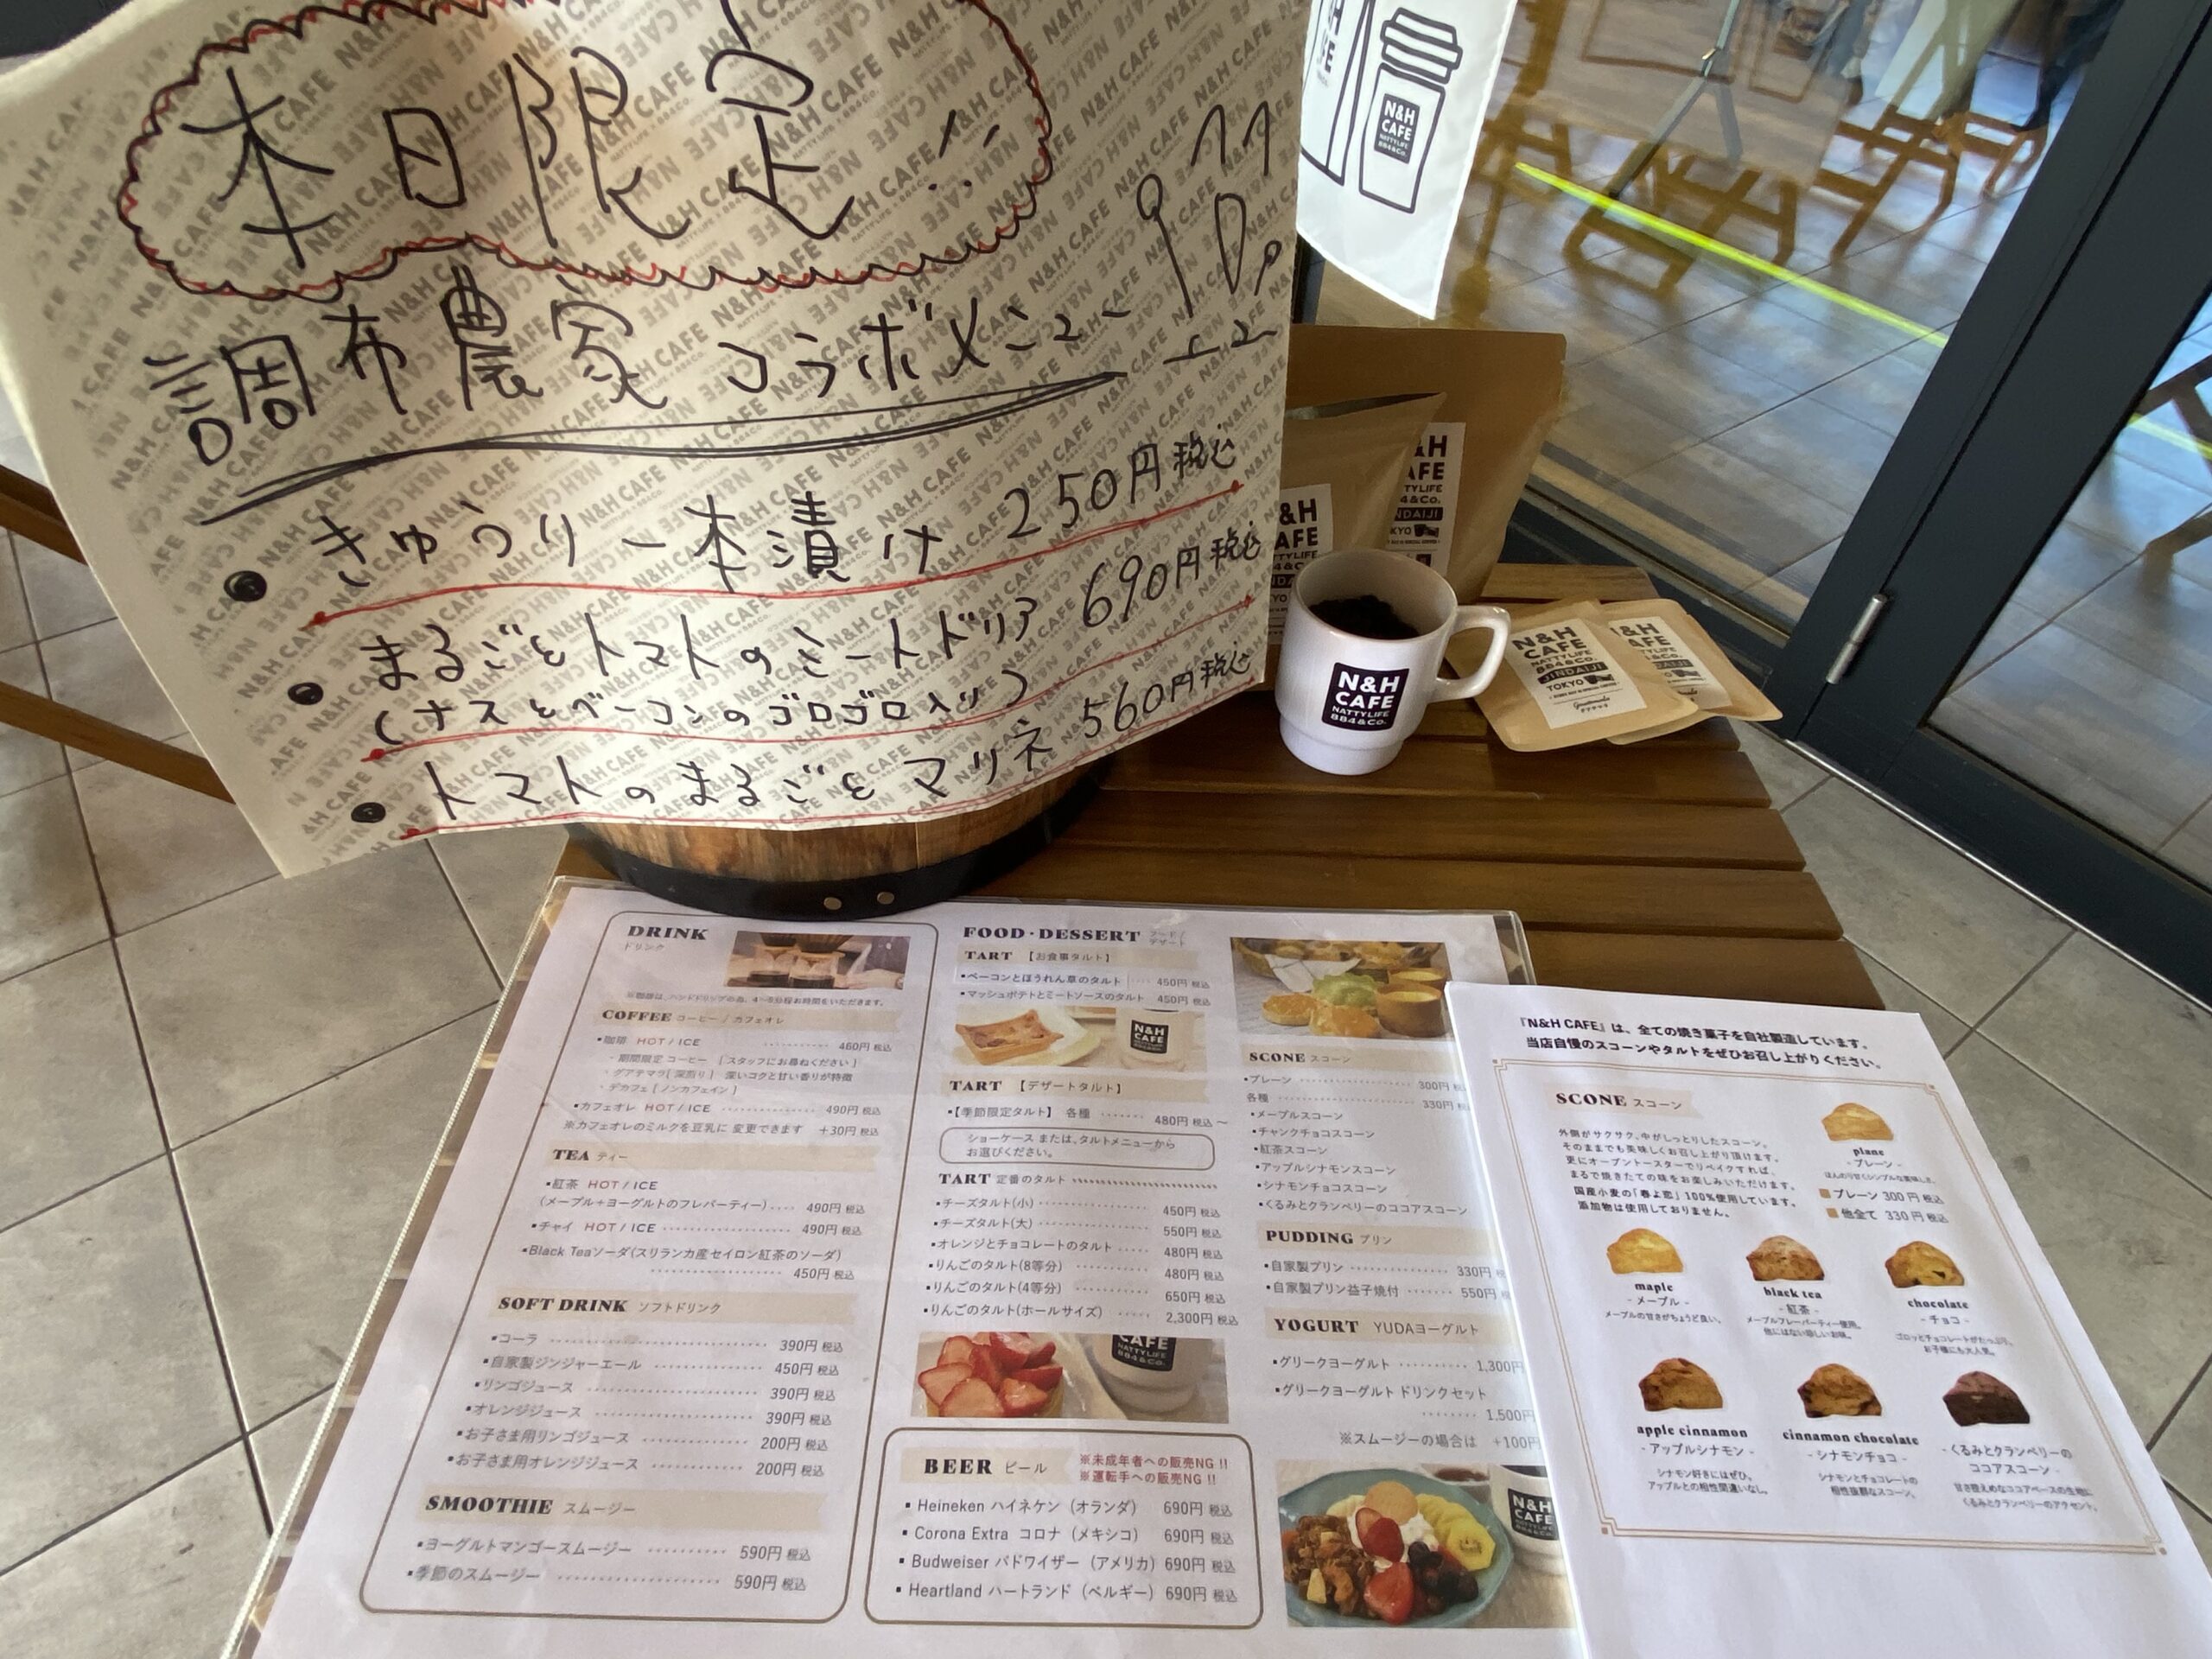 本日限定!!
調布農家コラボメニュー
きゅうり一本漬け 250円税込
まるごとトマトのミートドリア 690円税込
(ナスとベーコンのゴロゴロ入り)
トマトのまるごとマリネ 560円税込
N&H
CAFE
NATTYLIFE
884&Co.
N&H
CAFE
NATTYLIFE
884&Co.
JINDAIJI
TOKYO
DRINK
ドリンク
※珈琲は、ハンドドリップの為、4〜5分程お時間をいただきます。
COFFEE コーヒー / カフェオレ
・珈琲 HOT / ICE 460円 税込
・期間限定 コーヒー [スタッフにお尋ねください]
・グアテマラ[深煎り] 深いコクと甘い香りが特徴
・デカフェ [ノンカフェイン]
・カフェオレ HOT / ICE 490円 税込
※カフェオレのミルクを豆乳に 変更できます +30円 税込
TEA ティー
・紅茶 HOT / ICE
(メープル+ヨーグルトのフレバーティー) 490円 税込
・チャイ HOT / ICE 490円 税込
・Black Teaソーダ(スリランカ産セイロン紅茶のソーダ)
450円 税込
SOFT DRINK ソフトドリンク
・コーラ 390円 税込
・自家製ジンジャーエール 450円 税込
・リンゴジュース 390円 税込
・オレンジジュース 390円 税込
・お子さま用リンゴジュース 200円 税込
・お子さま用オレンジジュース 200円 税込
SMOOTHIE スムージー
・ヨーグルトマンゴースムージー 590円 税込
・季節のスムージー 590円 税込
FOOD・DESSERT フード / デザート
TART 【お食事タルト】
・ベーコンとほうれん草のタルト 450円 税込
・マッシュポテトとミートソースのタルト 450円 税込
TART 【デザートタルト】
・【季節限定タルト】 各種 480円 税込 〜
ショーケース または、タルトメニューから
お選びください。
TART 定番のタルト
・チーズタルト(小) 450円 税込
・チーズタルト(大) 550円 税込
・オレンジとチョコレートのタルト 480円 税込
・りんごのタルト(8等分) 480円 税込
・りんごのタルト(4等分) 650円 税込
・りんごのタルト(ホールサイズ) 2,300円 税込
BEER ビール
※未成年者への販売NG !!
※運転手への販売NG !!
・Heineken ハイネケン (オランダ) 690円 税込
・Corona Extra コロナ (メキシコ) 690円 税込
・Budweiser バドワイザー (アメリカ) 690円 税込
・Heartland ハートランド (ベルギー) 690円 税込
SCONE スコーン
・プレーン 300円
各種 330円
・メープルスコーン
・チャンクチョコスコーン
・紅茶スコーン
・アップルシナモンスコーン
・シナモンチョコスコーン
・くるみとクランベリーのココアスコーン
PUDDING プリン
・自家製プリン 330円
・自家製プリン益子焼付 550円
YOGURT YUDAヨーグルト
・グリークヨーグルト 1,300円
・グリークヨーグルト ドリンクセット
1,500円
※スムージーの場合は +100円
『N&H CAFE』は、全ての焼き菓子を自社製造しています。
当店自慢のスコーンやタルトをぜひお召し上がりください。
SCONE スコーン
外側がサクサク、中がしっとりしたスコーン。
そのままでも美味しくお召し上がり頂けます。
更にオーブントースターでリベイクすれば、
まるで焼きたての味をお楽しみいただけます。
国産小麦の「春よ恋」100%使用しています。
添加物は使用しておりません。
plane
- プレーン -
ほんのり甘くシンプルな美味しさ。
プレーン 300 円 税込
他全て 330 円 税込
maple
- メープル -
メープルの甘さがちょうど良い。
black tea
- 紅茶 -
メープルフレーバーティー使用。
他にはない珍しいお味。
chocolate
- チョコ -
ゴロッとチョコレートがたっぷり。
お子様にも大人気。
apple cinnamon
- アップルシナモン -
シナモン好きにはぜひ。
アップルとの相性間違いなし。
cinnamon chocolate
- シナモンチョコ -
シナモンとチョコレートの
相性抜群なスコーン。
- くるみとクランベリーの
ココアスコーン -
甘さ控えめなココアベースの生地に
くるみとクランベリーのアクセント。